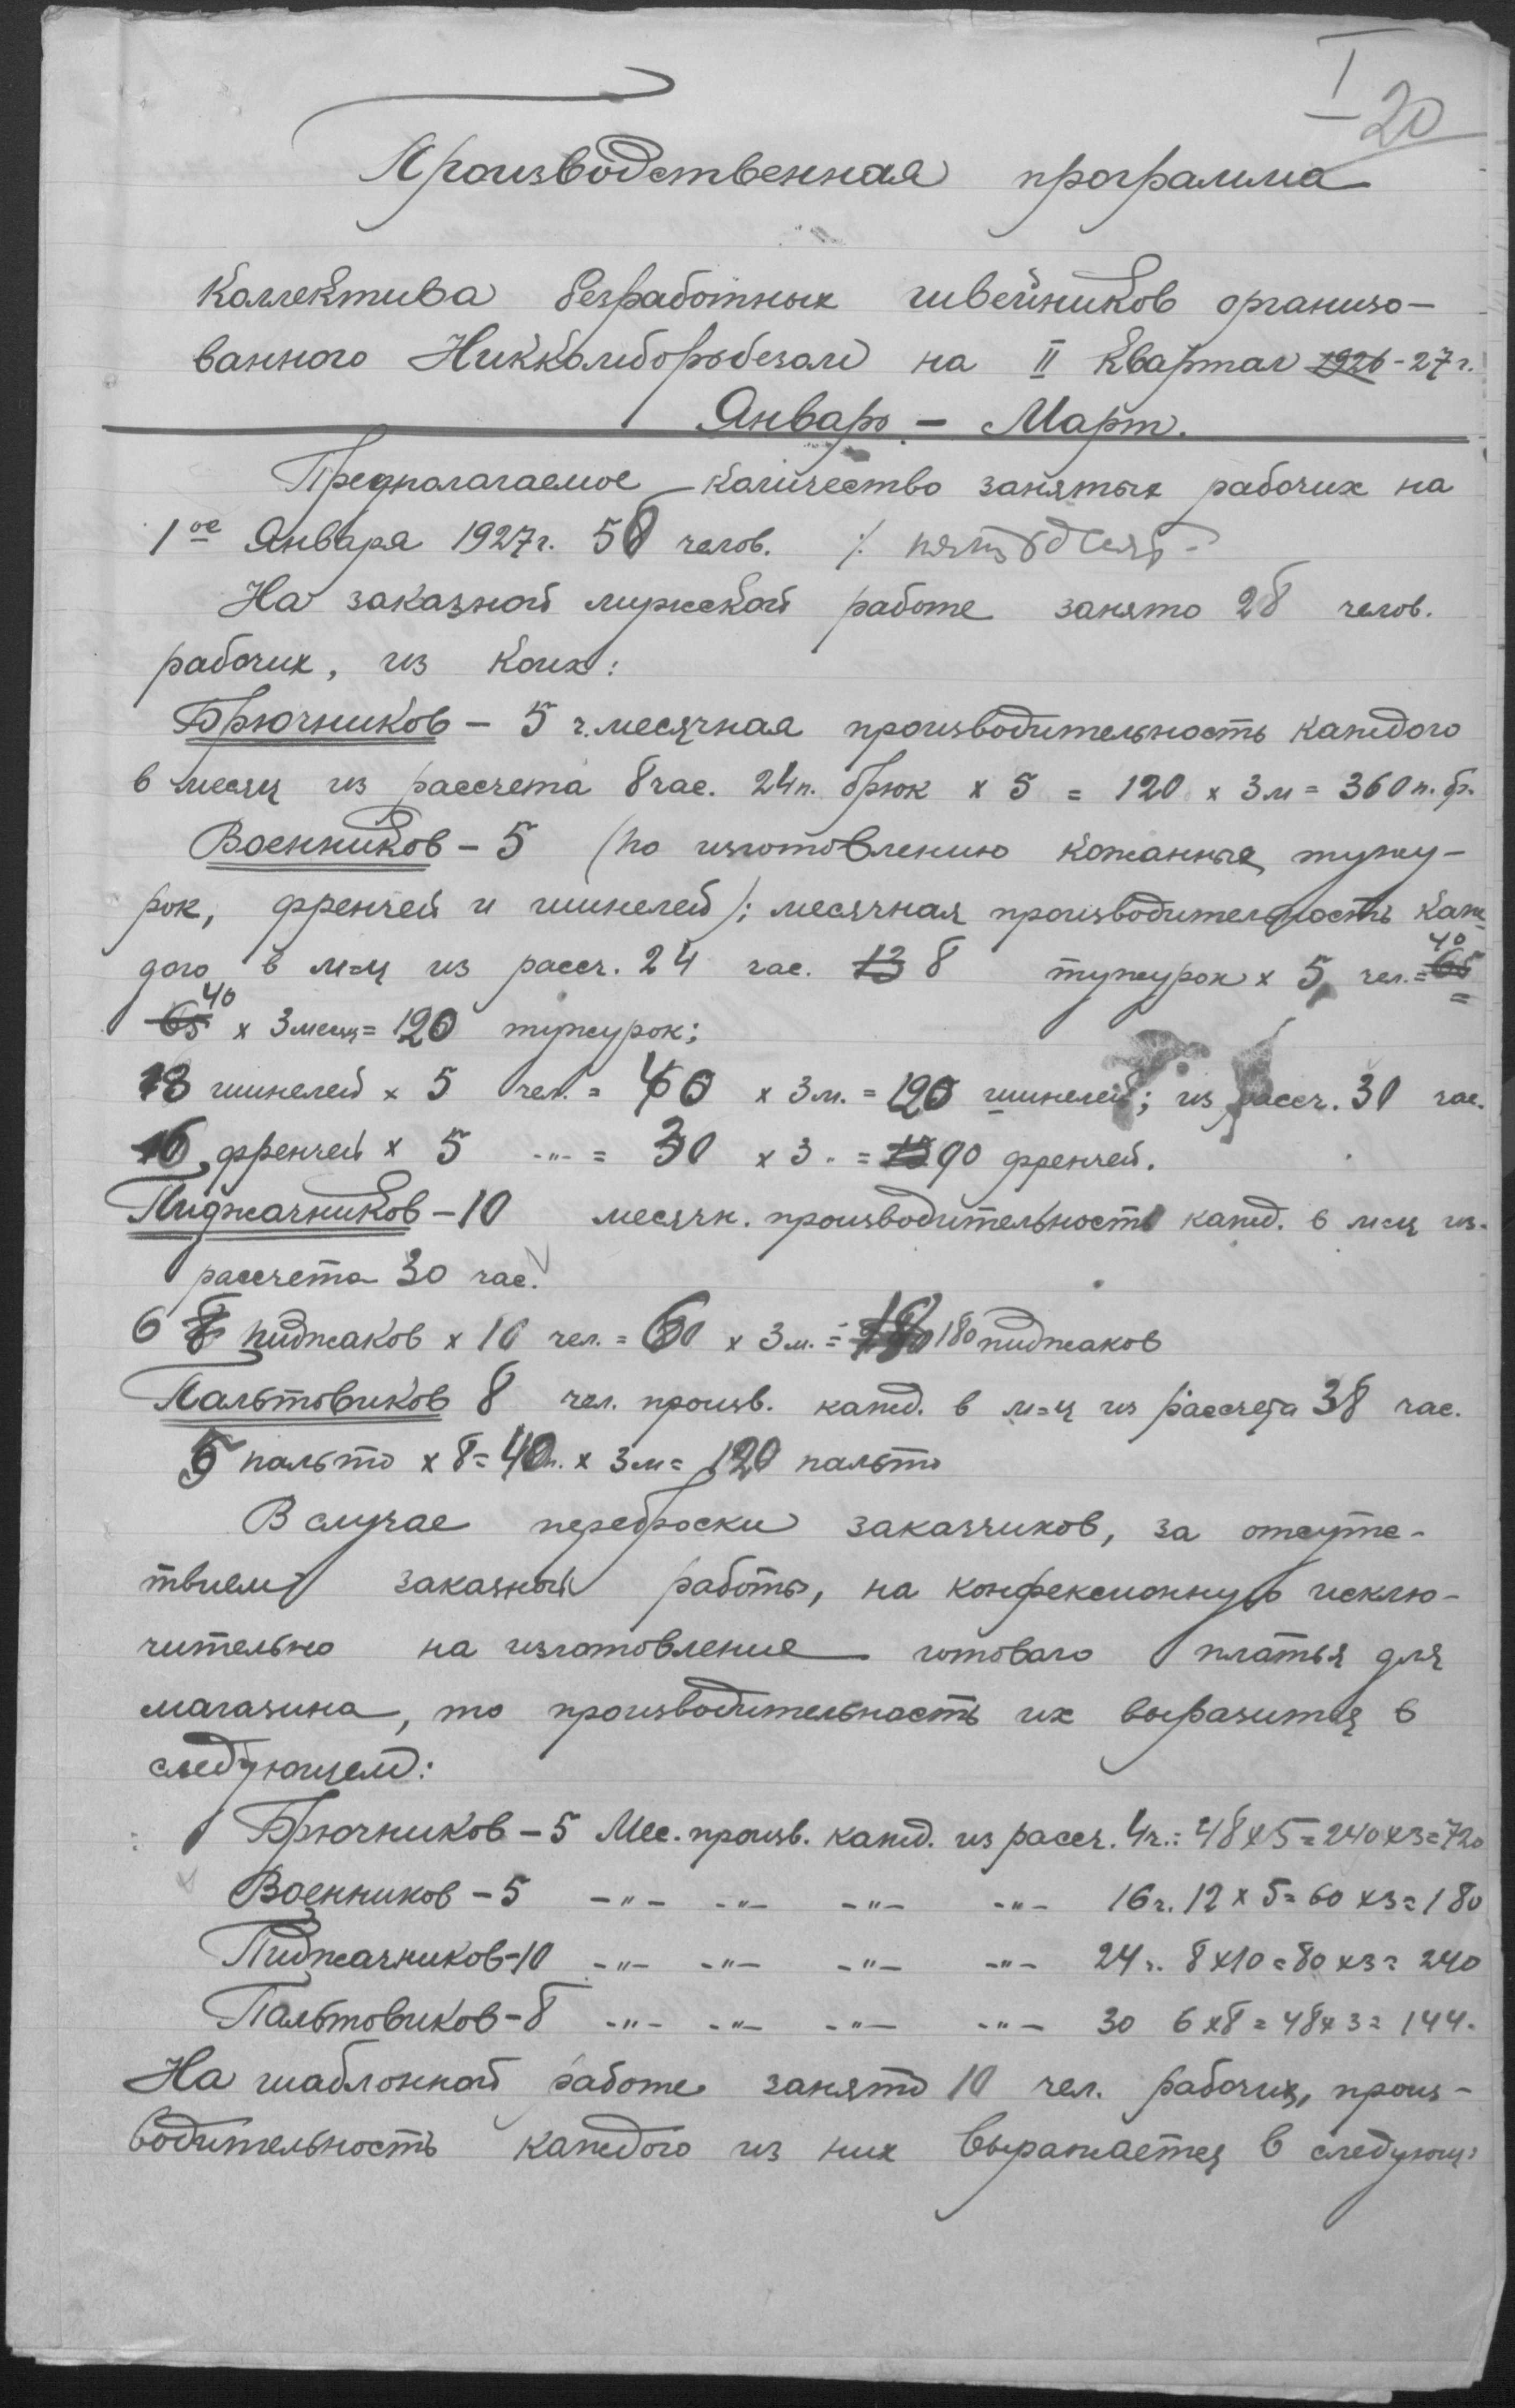 I
20
Производственная программа
Коллектива безработных швейников организо-
ванного Никкомборьбезом на II квартал 1926-27 г.
Январь - Март.
Предполагаемое количество занятых рабочих на
1ое Января 1927 г. 58 челов. /.
На заказной мужской работе занято 28 челов.
рабочих, из коих:
Брючников - 5 ч. месячная производительность каждого
в месяц из рассчета 8 час. 24 п. брюк х 5 = 120 х 3 м = 360 п. бр.
Военников - 5 (по изготовлению кожанных тужу-
рок, френчей и шинелей); месячная производительность каж-
дого в м-ц из рассч. 24 час. 13 8 тужурок х 5 чел. = 65 40
65 40 х 3 месяц = 120 тужурок;
8 шинелей х 5 чел. = 40 х 3 м. = 120 шинелей; из рассч. 30 час.
6 френчей х 5 -"- = 30 х 3 = 90 френчей.
Пиджачников - 10 месячн. производительность кажд. в м-ц из
рассчета 30 час.
6 8 пиджаков х 10 чел. = 60 х 3 м. = 180 пиджаков
Пальтовиков 8 чел. произв. кажд. в м-ц из рассчета 38 час.
5 пальто х 8 = 40 п. х 3 м = 120 пальто
В случае переброски заказчиков, за отсутс-
твием заказной работы, на конфексионную исклю-
чительно на изготовление готоваго платья для
магазина, то производительность их выразится в
следующем:
Брючников - 5 Мес. произв. кажд. из рассч. 4 ч.: 48 х 5 = 240 х 3 = 720
Военников - 5 -"- -"- -"- -"- 16 ч. 12 х 5 = 60 х 3 = 180
Пиджачников - 10 -"- -"- -"- -"- 24 ч. 8 х 10 = 80 х 3 = 240
Пальтовиков - 8 -"- -"- -"- -"- 30 6 х 8 = 48 х 3 = 144.
На шаблонной работе занято 10 чел. рабочих, произ-
водительность каждого из них выражается в следующ: